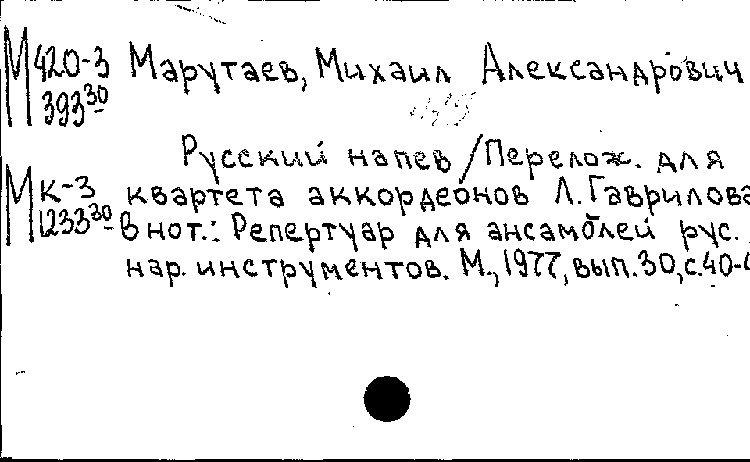 М 420-3 Марутаев, Михаил Александрович
393 30
Русский напев / Перелож. для
М К-3 квартета аккордеонов Л. Гаврилова
1233 30 В нот.: Репертуар для ансамблей рус.
нар. инструментов. М., 1977, вып. 30, с. 40-